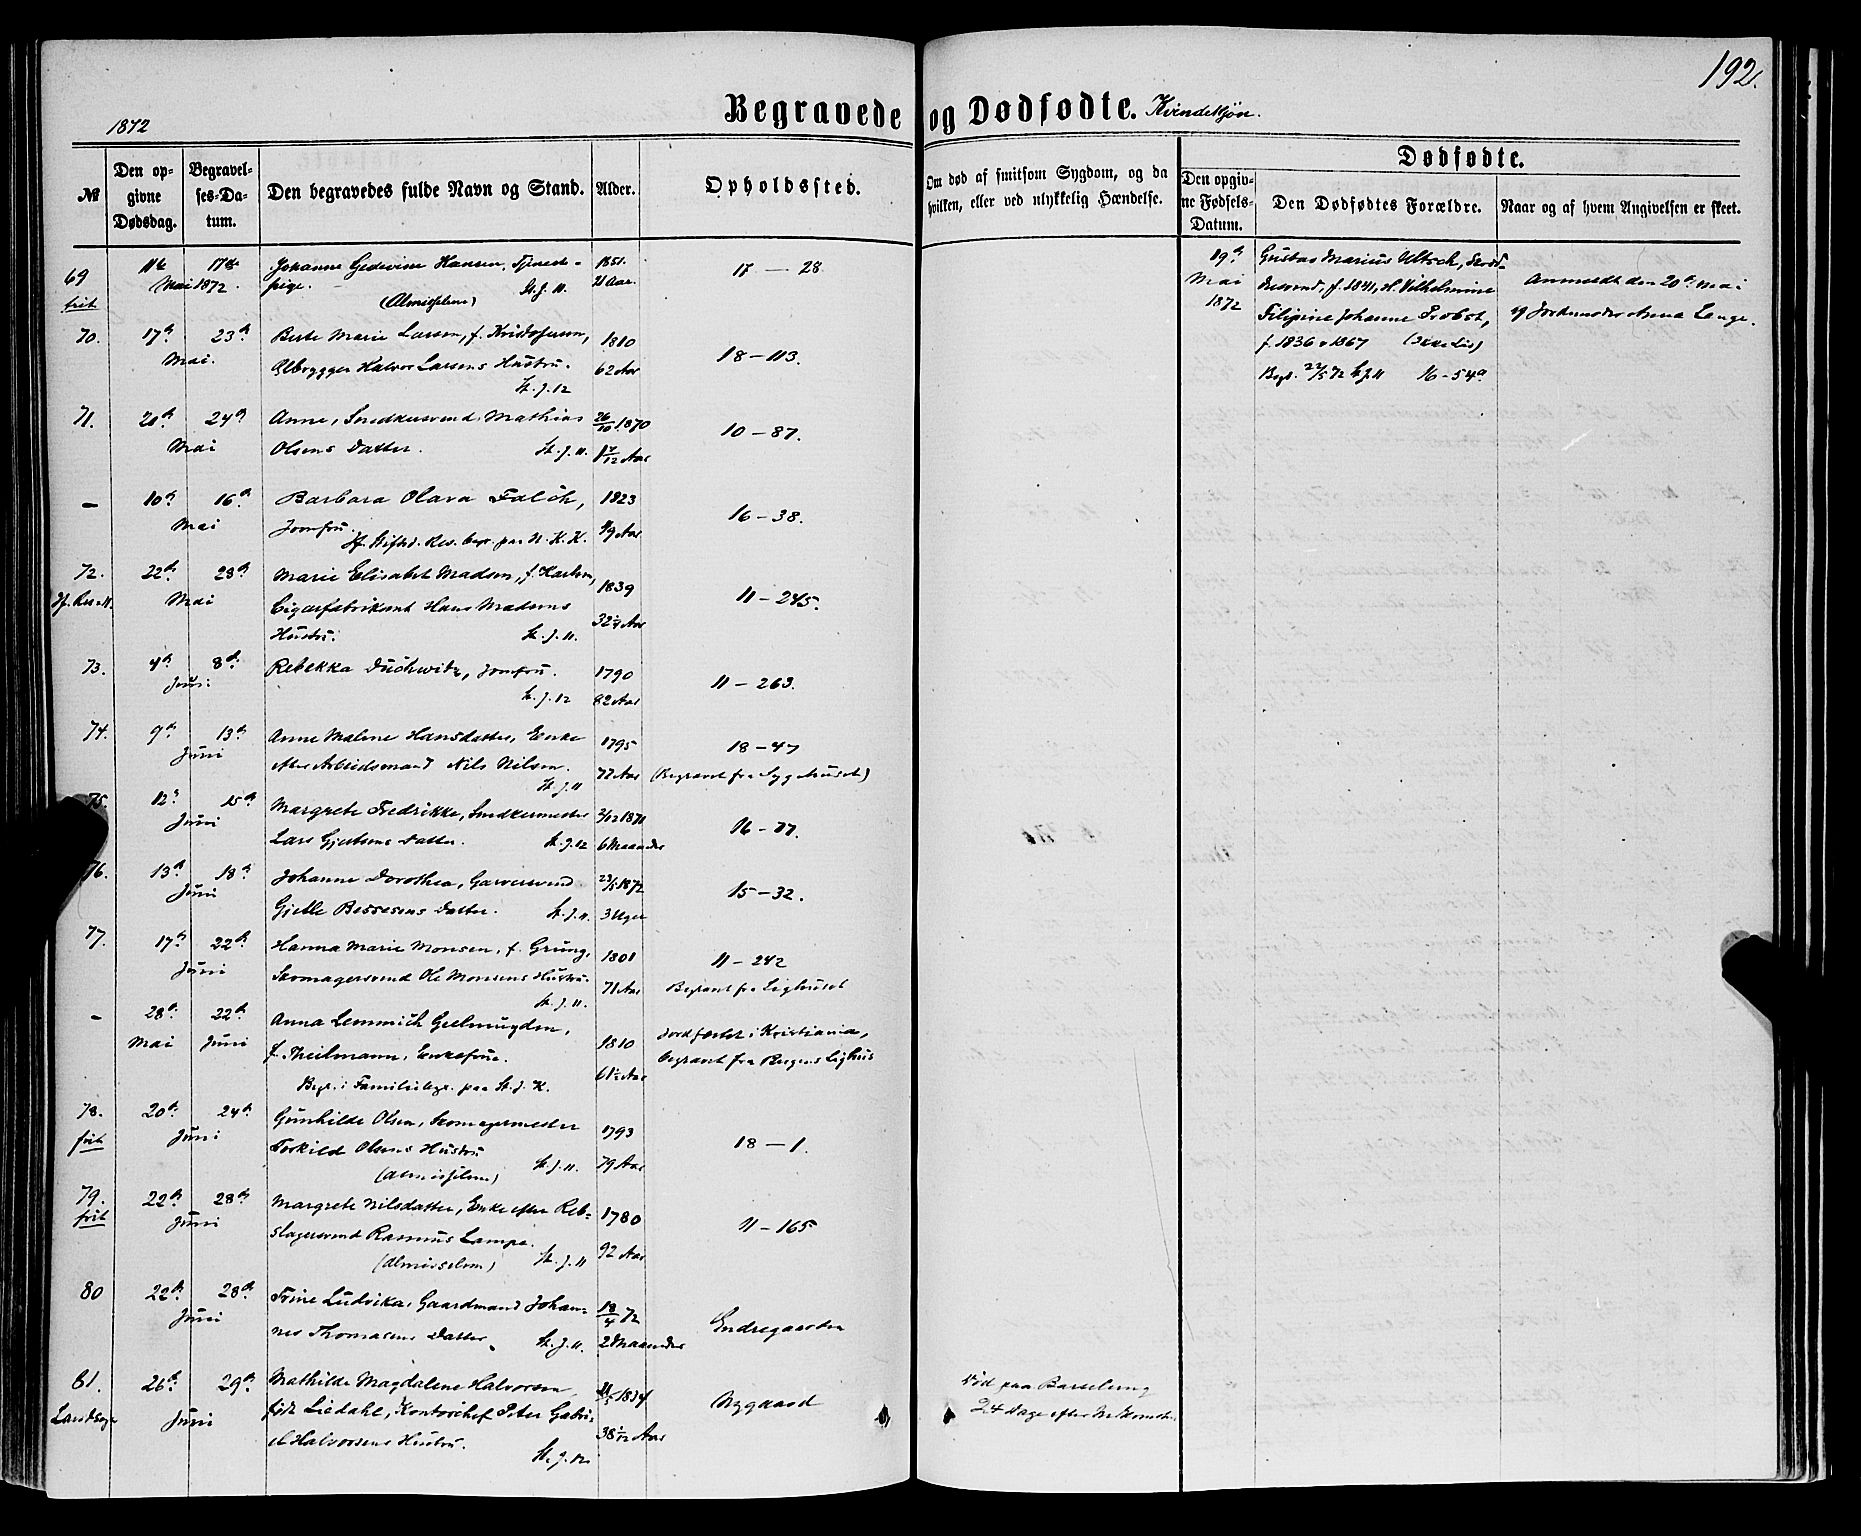 192.
1872
Begravede og Dødfødte. Kvindekjøn.
№
Den op-
givne
Dødsdag.
Begravel-
ses-Da-
tum.
Den begravedes fulde Navn og Stand.
Alder.
Opholdssted.
Om død af smitsom Sygdom, og da
hvilken, eller ved ulykkelig Hændelse.
Dødfødte.
Den opgiv-
ne Fødsels-
Datum.
Den Dødfødtes Forældre.
Naar og af hvem Angivelsen er skeet.
69 11te 17de Johanne Gedevine Hansen, Tjeneste- 1851. 17 — 28
frit Mai 1872. pige. St. J. 11. 21 Aar.
(Almisselem)
70. 17de 23de Berte Marie Larsen, f. Kristofersen, 1810 18 — 113.
Mai. Ølbrygger Halvor Larsens Hustru. 62 Aar
St. J. 12
71. 20de 24de Anne, Snedkersvend Mathias 26/10 1870 10 — 87.
Mai Olsens Datter. St. J. 11. 1 7/12 Aar
— 10de 16de Barbara Olava Falch, 1823 16 — 38.
Mai Jomfru. 49 Aar
Hf. Stiftsd. Res. begr. paa N. K. K.
72. 22de 28de Marie Elisabet Madsen, f. Karlsen, 1839 11 — 245.
Mai Cigarfabrikant Hans Madsens 32 3/4 Aar
Hustru. St. J. 11.
73. 4de 8de Rebekka Duchwitz, Jomfru. 1790 11 — 263.
Juni St. J. 12 82 Aar
74. 9de 13de Anne Malene Hansdatter, Enke 1795 18 — 47
Juni efter Arbeidsmand Nils Nilsen. 77 Aar (Begravet fra Sygehuset)
St. J. 11
75. 12te 15de Margrete Fredrikke, Snedkermester 2/12 1871 16 — 77.
Juni Lars Gjertsens Datter. St. J. 12 6 Maaneder
76. 13de 18de Johanne Dorothea, Garversvend 23/5 1872 15 — 32.
Juni Gjelle Bessesens Datter. St. J. 11. 3 Uger
77. 17de 22de Hanna Marie Monsen, f. Grung, 1801 11 — 242
Juni Skomagersvend Ole Monsens Hustru. 71 Aar Begravet fra Lighuset
St. J. 11.
— 28de 22de Anna Lemmich Geelmuyden, 1810 Jordfæstet i Kristiania,
Mai Juni f. Heilmann, Enkefrue. 61 1/2 Aar begravet fra Bergens Lighus
Begr. i Familiebegr. paa St. J. K.
78. 20de 24de Gunhilde Olsen, Skomagermester 1793 18 — 1.
frit Juni Torkild Olsens Hustru St. J. 11. 79 Aar
(Almisselem)
79. 22de 28de Margrete Nilsdatter, Enke efter Reb- 1780 11 — 165
frit Juni slagersvend Rasmus Lampe. 92 Aar
(Almisselem) St. J. 11
80 22de 28de Trine Ludvika, Gaardmand Johan- 18/4 72 Endregaarden
Juni nes Thomasens Datter. St. J. 11. 2 Maaneder
81. 26de 29de Mathilde Magdalene Halvorsen, 1834 Nygaard Død paa Barselseng
Juni født Liedahl, Kontorchef Peter Gabri- 38 1/12 Aar 24 Dage efter
el Halvorsens Hustru. St. J. 12
19de
Mai
1872
Gustav Marius Ultsch,
f. 1841, og Vilhelmine
Filipine Johanne Probst,
f. 1836 v 1867 (Ikke Liv)
Begr. 22/5 72 St. J. 11 16 — 54a
Anmeldt den 20de Mai
af Jordemoder Anna Lange.